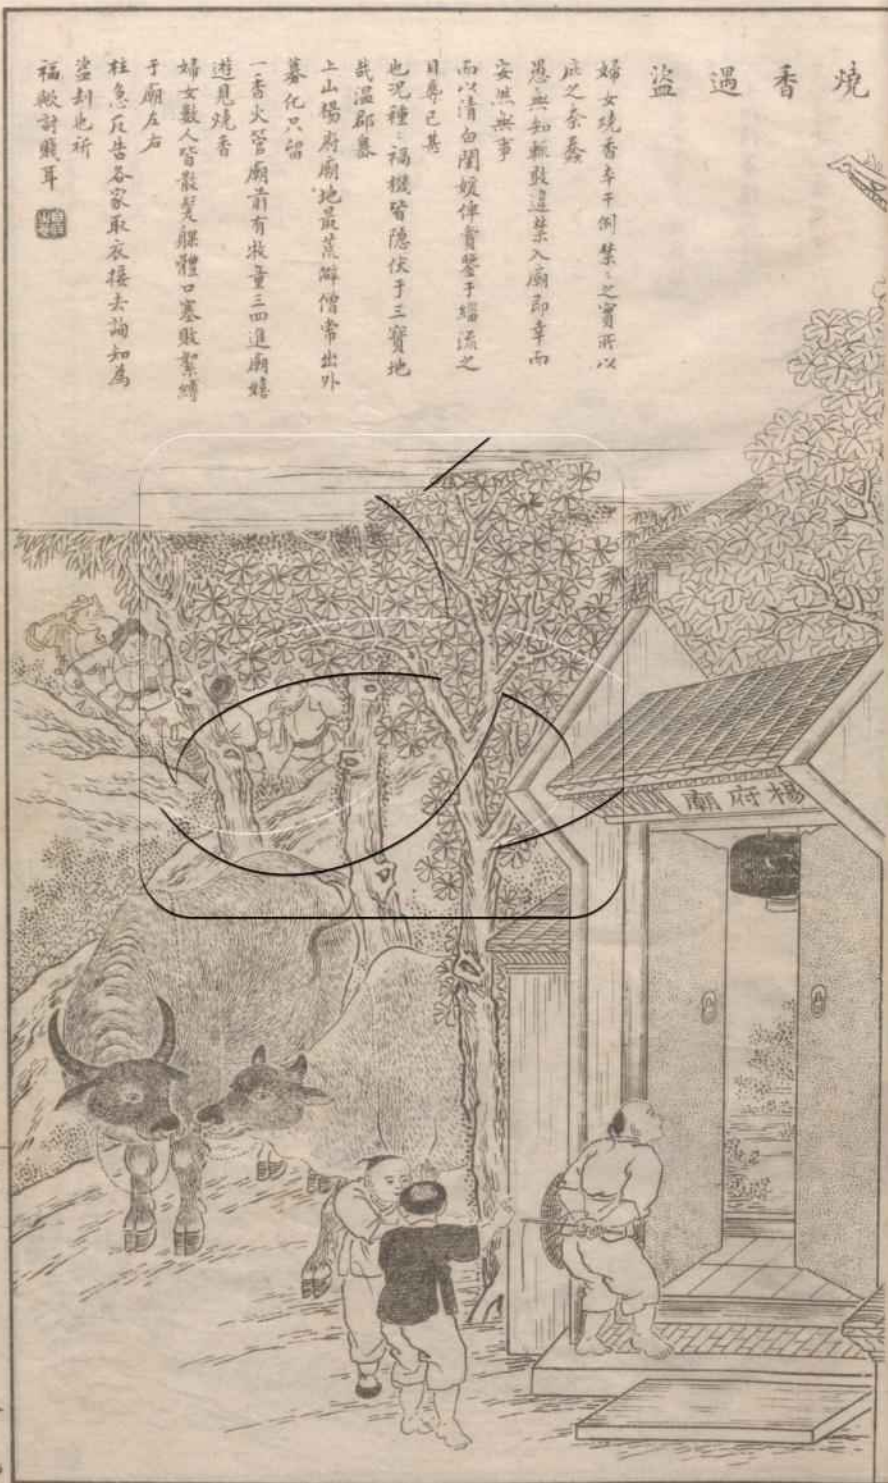 燒香遇盜
婦女燒香幸干例禁〻之實所以
庇之奈蠢
愚無知輒敢違禁入廟即幸而
安然無事
而以清白閨媛俾賣鑒于緇流之
目辱已甚
也況種〻禍機皆隱伏于三寶地
哉溫郡暮
上山楊府廟地最荒僻僧常出外
募化只留
一香火管廟前有牧童三四進廟嬉
遊見燒香
婦女數人皆散髮躶體口塞敗絮縛
于廟左右
柱急反告各家取衣接去詢知為
盜刦也祈
福歟討賤耳
楊府廟